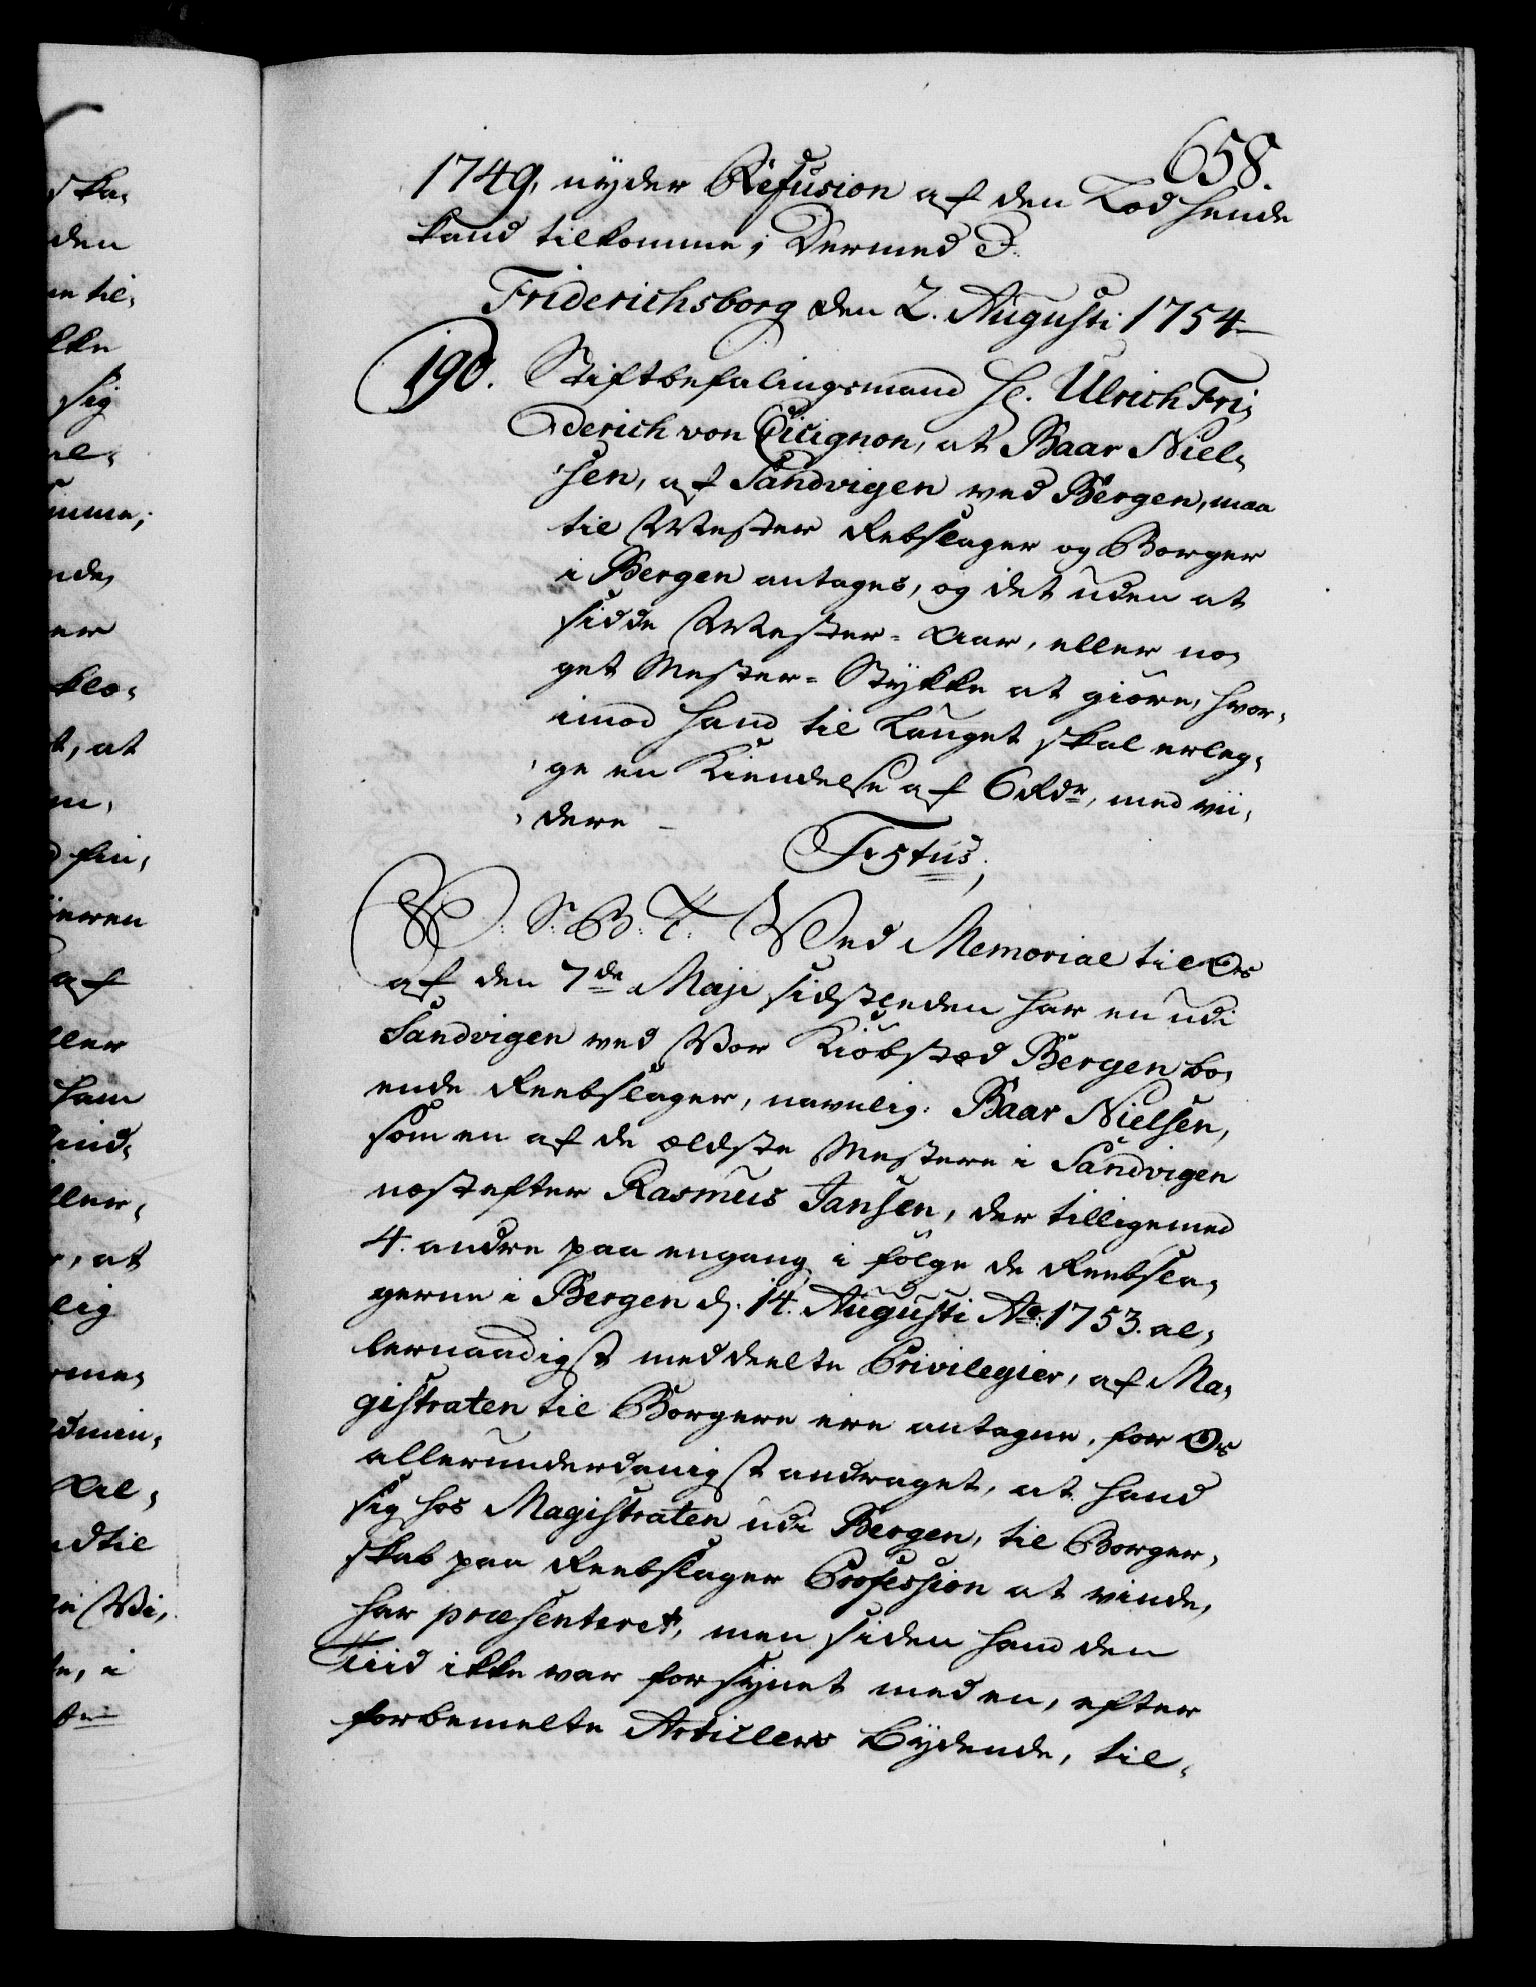 658.
1749, nyder Refusion af den Lod hende
kand tilkomme; Dermed
Friderichsborg den 2. Augusti 1754
190. Stiftbefalingsmand Hr. Ulrich Fri,
derich von Cicignon, at Baar Niel,
sen, af Sandvigen ved Bergen, maa
til Mester Rebslager og Borger
i Bergen antages, og det uden at
sidde Mester-Aar, eller no,
get Mester-Stykke at giøre, hvor,
imod hand til Lauget skal erleg,
ge en Kiendelse af 6 Rdr, med vii,
dere
F. 5tus;
S: B: T. Ved Memorial til Os
af den 7de Maji sidstleden har en udi
Sandvigen ved Vor Kiøbsted Bergen bo,
ende Reebslager, navnlig: Baar Nielsen,
som en af de ældste Mestere i Sandvigen
næst efter Rasmus Jansen, der tilligemed
4. andre paa engang i følge de Reebsla,
gerne i Bergen d. 14. Augusti Ao 1753. al,
lernaadigst meddeelte Privilegier, af Ma,
gistraten til Borgere ere antagne, for Os
allerunderdanigst andraget, at hand
sig hos Magistraten udi Bergen, til Borger,
skab paa Reebslager Profession at vinde,
har præsenteret, men siden hand den
Tiid ikke var forsynet med en, efter
forbemelte Articlers Lydende, til,
ska,
den
til,
kke
sig
nde,
er
klo,
at
fin,
ieren
af
ller
ham
ller,
at
lig
dmin,
dtil
Vi,
i